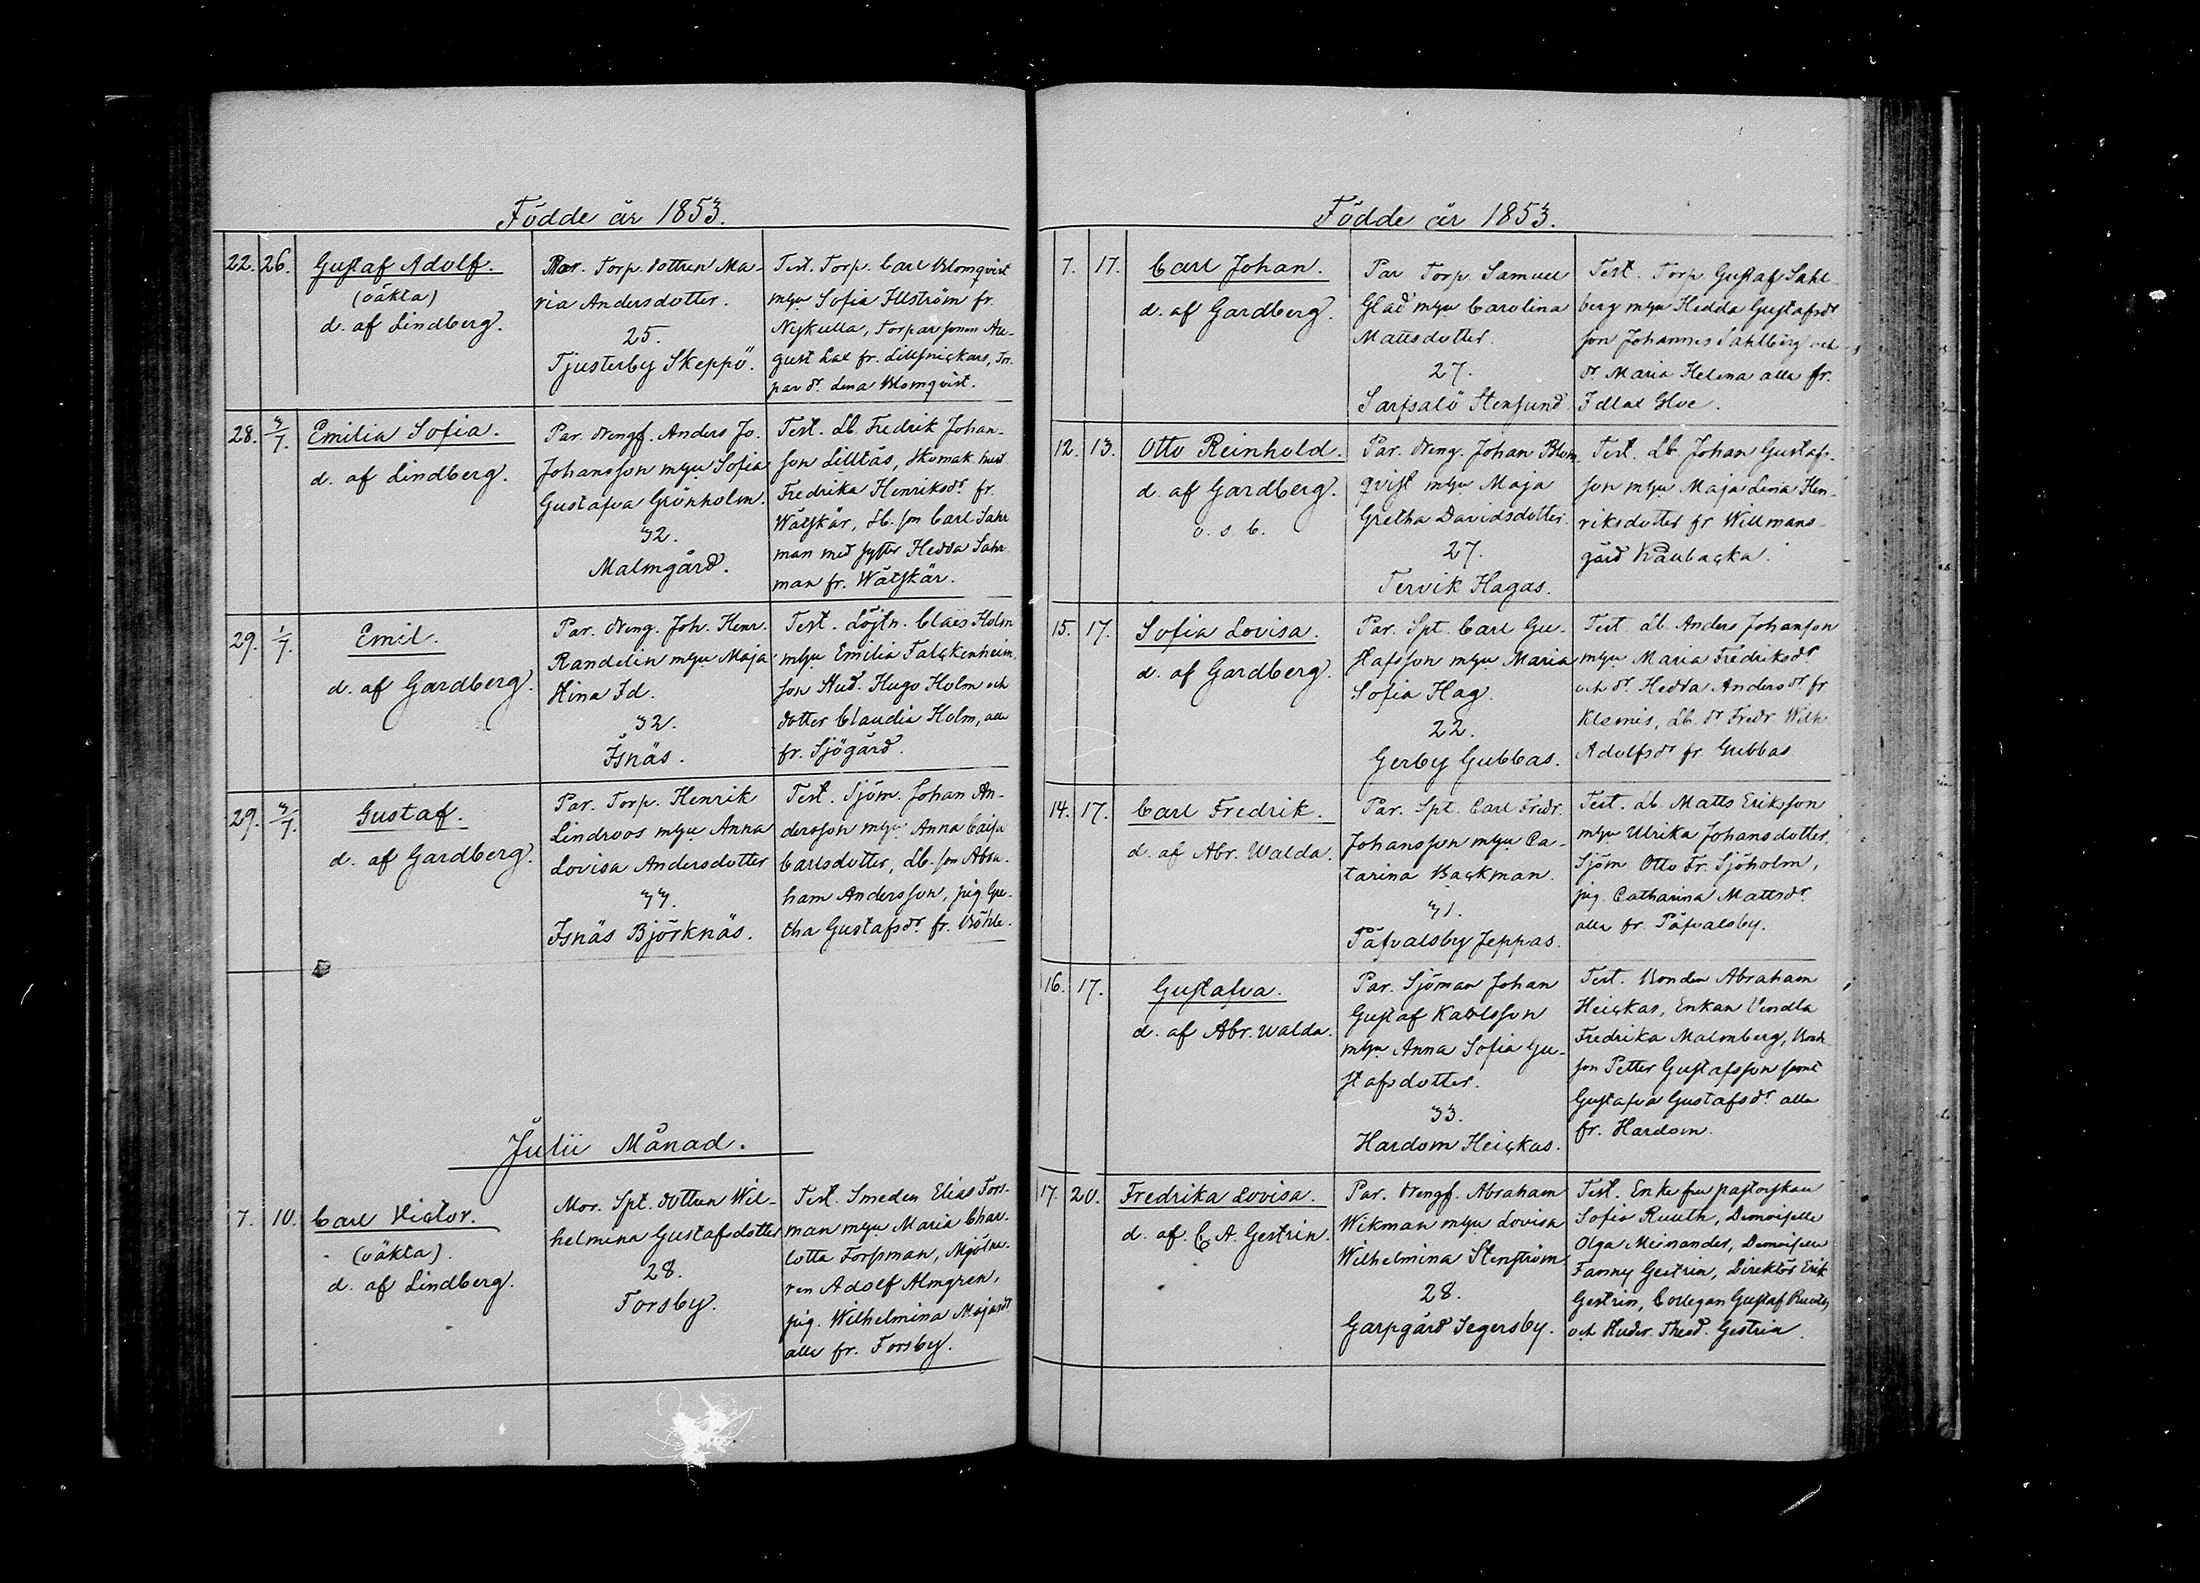 Födde år 1853.
22. 26. Gustaf Adolf.
(oäkta)
d. af Lindberg.
Mor. Torp. dottren Ma-
ria Andersdotter.
25.
Tjusterby Skeppö.
Test. Torp. Carl Blomqvist
mhu Sofia Illström fr.
Nykulla, Torparsonen Au-
gust fr. Tor-
par dr. Lena Blomqvist.
28. 3/7. Emilia Sofia.
d. af Lindberg.
Par. drengf. Anders Jo.
Johansson mhu Sofia
Gustafva Grönholm.
32.
Malmgård.
Test. Lb. Fredrik Johan-
son Lilltås, Skomak. hust
Fredrika Henriksdr. fr.
Wätskär, Lb. son Carl Sahr
man med syster Hedda Sahr
man fr. Wätskär.
29. 1/7. Emil.
d. af Gardberg.
Par. dreng. Joh. Henr.
Randelin mhu Maja
Stina Id.
32.
Isnäs.
Test. Löjtn. Claës Holm
mhu Emilia Falckenheim,
son Stud. Hugo Holm och
dotter Claudia Holm, alla
fr. Sjögård.
29. 3/7. Gustaf.
d. af Gardberg.
Par. Torp. Henrik
Lindroos mhu Anna
Lovisa Andersdotter
33.
Isnäs Björknäs.
Test. Sjöm. Johan An-
dersson mhu Anna Caisa
Carlsdotter, Lb. son Abra-
ham Andersson, pig. Gre-
tha Gustafsdr. fr. Böhle.
Julii Månad.
7. 10. Carl Victor.
(oäkta).
d. af Lindberg.
Mor. Spt. dottren Wil-
helmina Gustafsdotter
28.
Forsby.
Test. Smeden Elias Fors-
man mhu Maria Char-
lotta Forssman, Mjölna-
ren Adolf Almgren,
pig. Wilhelmina Majasdr
alla fr. Forsby.
Födde år 1853.
7. 17. Carl Johan.
d. af Gardberg.
Par Torp. Samuel
Glad mhu Carolina
Mattsdotter.
27.
Sarfsalö Stensund
Test. Torp Gustaf Sahl-
berg mhu Hedda Gustafsdr
son Johannes Sahlberg och
dr. Maria Helena alla fr.
12. 13. Otto Reinhold.
d. af Gardberg.
o. s. b.
Par. dreng. Johan Blom
qvist mhu Maja
Gretha Davidsdotter.
27.
Tervik Hagas.
Test. Lb Johan Gustafs-
son mhu Maja Lena Hen-
riksdotter fr Willmans-
gård Kåubacka.
15. 17. Sofia Lovisa.
d. af Gardberg.
Par. Spt. Carl Gu-
stafsson mhu Maria
Sofia Hag.
22.
Gerby Gubbas.
Test Lb. Anders Johanson
mhu Maria Fredriksdr
och dr. Hedda Andersdr. fr.
Klemis, Lb. dr Fredr. Wilh.
Adolfsdr fr. Gubbas
14. 17. Carl Fredrik.
d. af Abr. Walda.
Par. Spt. Carl Fredr.
Johansson mhu Ca-
tarina Backman.
31.
Påfvalsby Jeppas.
Test. Lb Matts Eriksson
mhu Ulrika Johansdotter,
Sjöm. Otto Fr. Sjöholm,
pig Catharina Mattsdr.
alla fr. Påfvalsby.
16. 17. Gustafva.
d. af Abr. Walda.
Par. Sjöman Johan
Gustaf Karlsson
mhu Anna Sofia Gu-
stafsdotter.
33.
Hardom Heickas.
Test. Bonden Abraham
Heickas, Enkan Vendla
Fredrika Malmberg, Bonde
son Petter Gustafsson samt
Gustafva Gustafsdr. alla
fr. Hardom.
17. 20. Fredrika Lovisa.
d. af C. A. Gestrin.
Par. drengf. Abraham
Wikman mhu Lovisa
Wilhelmina Stenström.
28.
Garpgård Segersby.
Test. Enke fru pastorskan
Sofia Ruuth, Demoiselle
Olga Meinander, Demoiselle
Fanny Gestrin, Direktör Erik
Gestrin, Collegan Gustaf Ruuth,
och Studer. Theod. Gestrin.